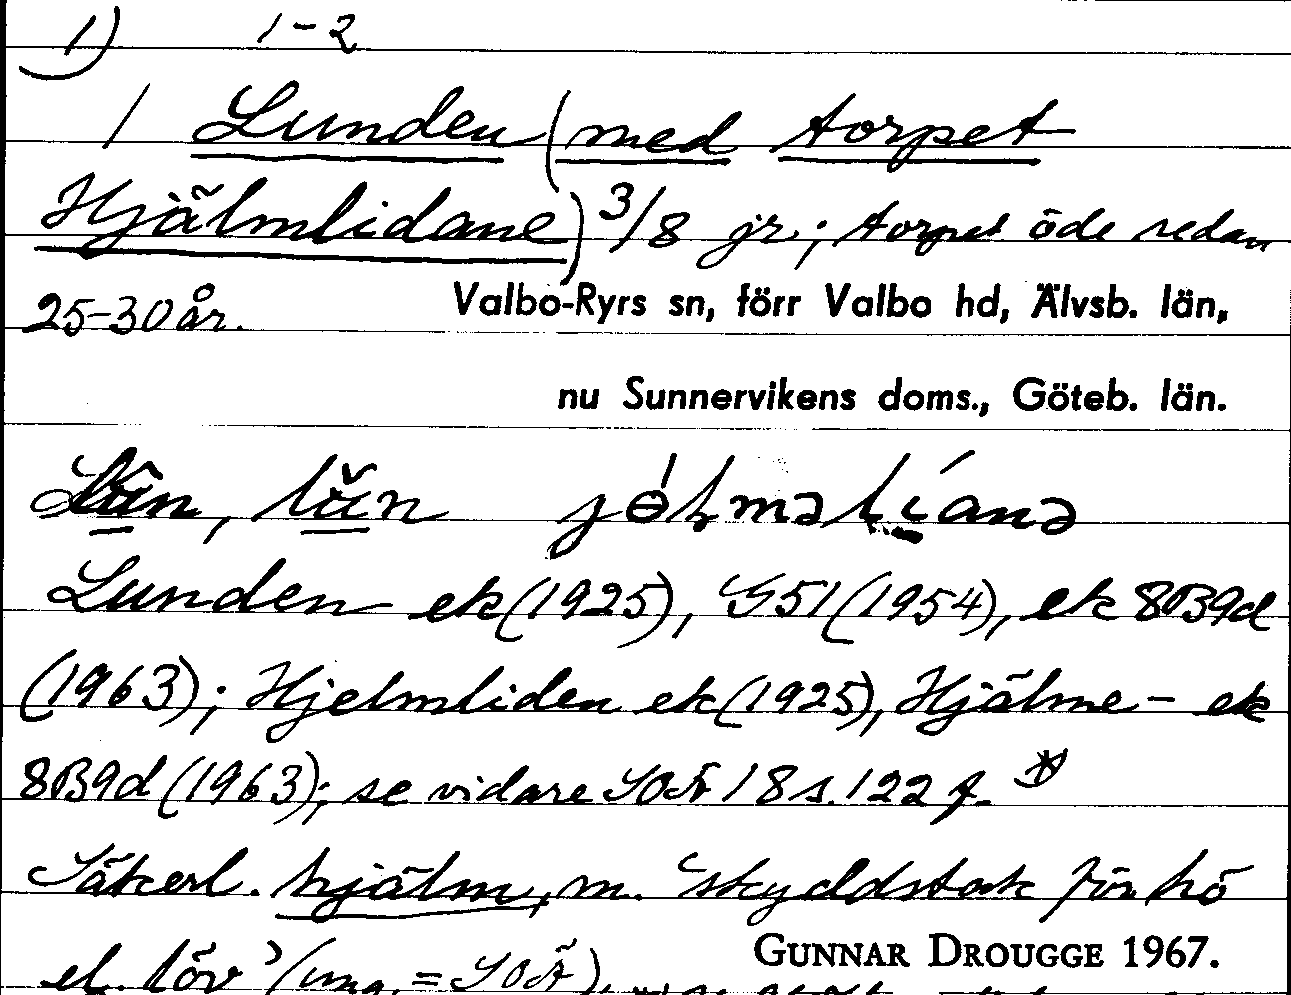 1) 1-2
1 Lunden (med torpet
Hjälmlidane) 3/8 jr.; torpet öde redan
25-30 år.
Valbo-Ryrs sn, förr Valbo hd, Älvsb. län,
nu Sunnervikens doms., Göteb. län.
Lunden ek (1925), G51 (1954), ek 8B9d
(1963); Hjelmliden ek (1925), Hjälme- ek
8B9d (1963); se vidare SOÄ 18 s. 122 f.
Säkerl. hjälm, m. 'skyddstak för hö
el. löv' (ung. = SOÄ),
GUNNAR DROUGGE 1967.